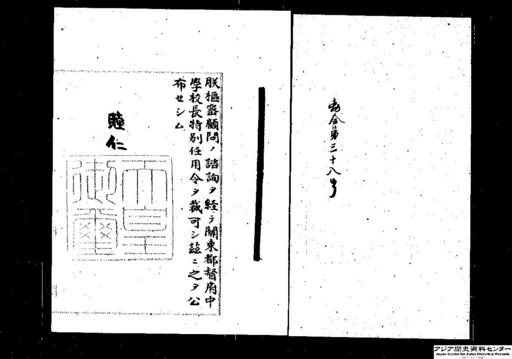 勅令第三十八号
朕樞密顧問ノ諮詢ヲ経テ關東都督府中
學校長特別任用令ヲ裁可シ茲ニ之ヲ公
布セシム
睦仁
天皇
御璽
アジア歴史資料センター
Japan Center for Asian Historical Records